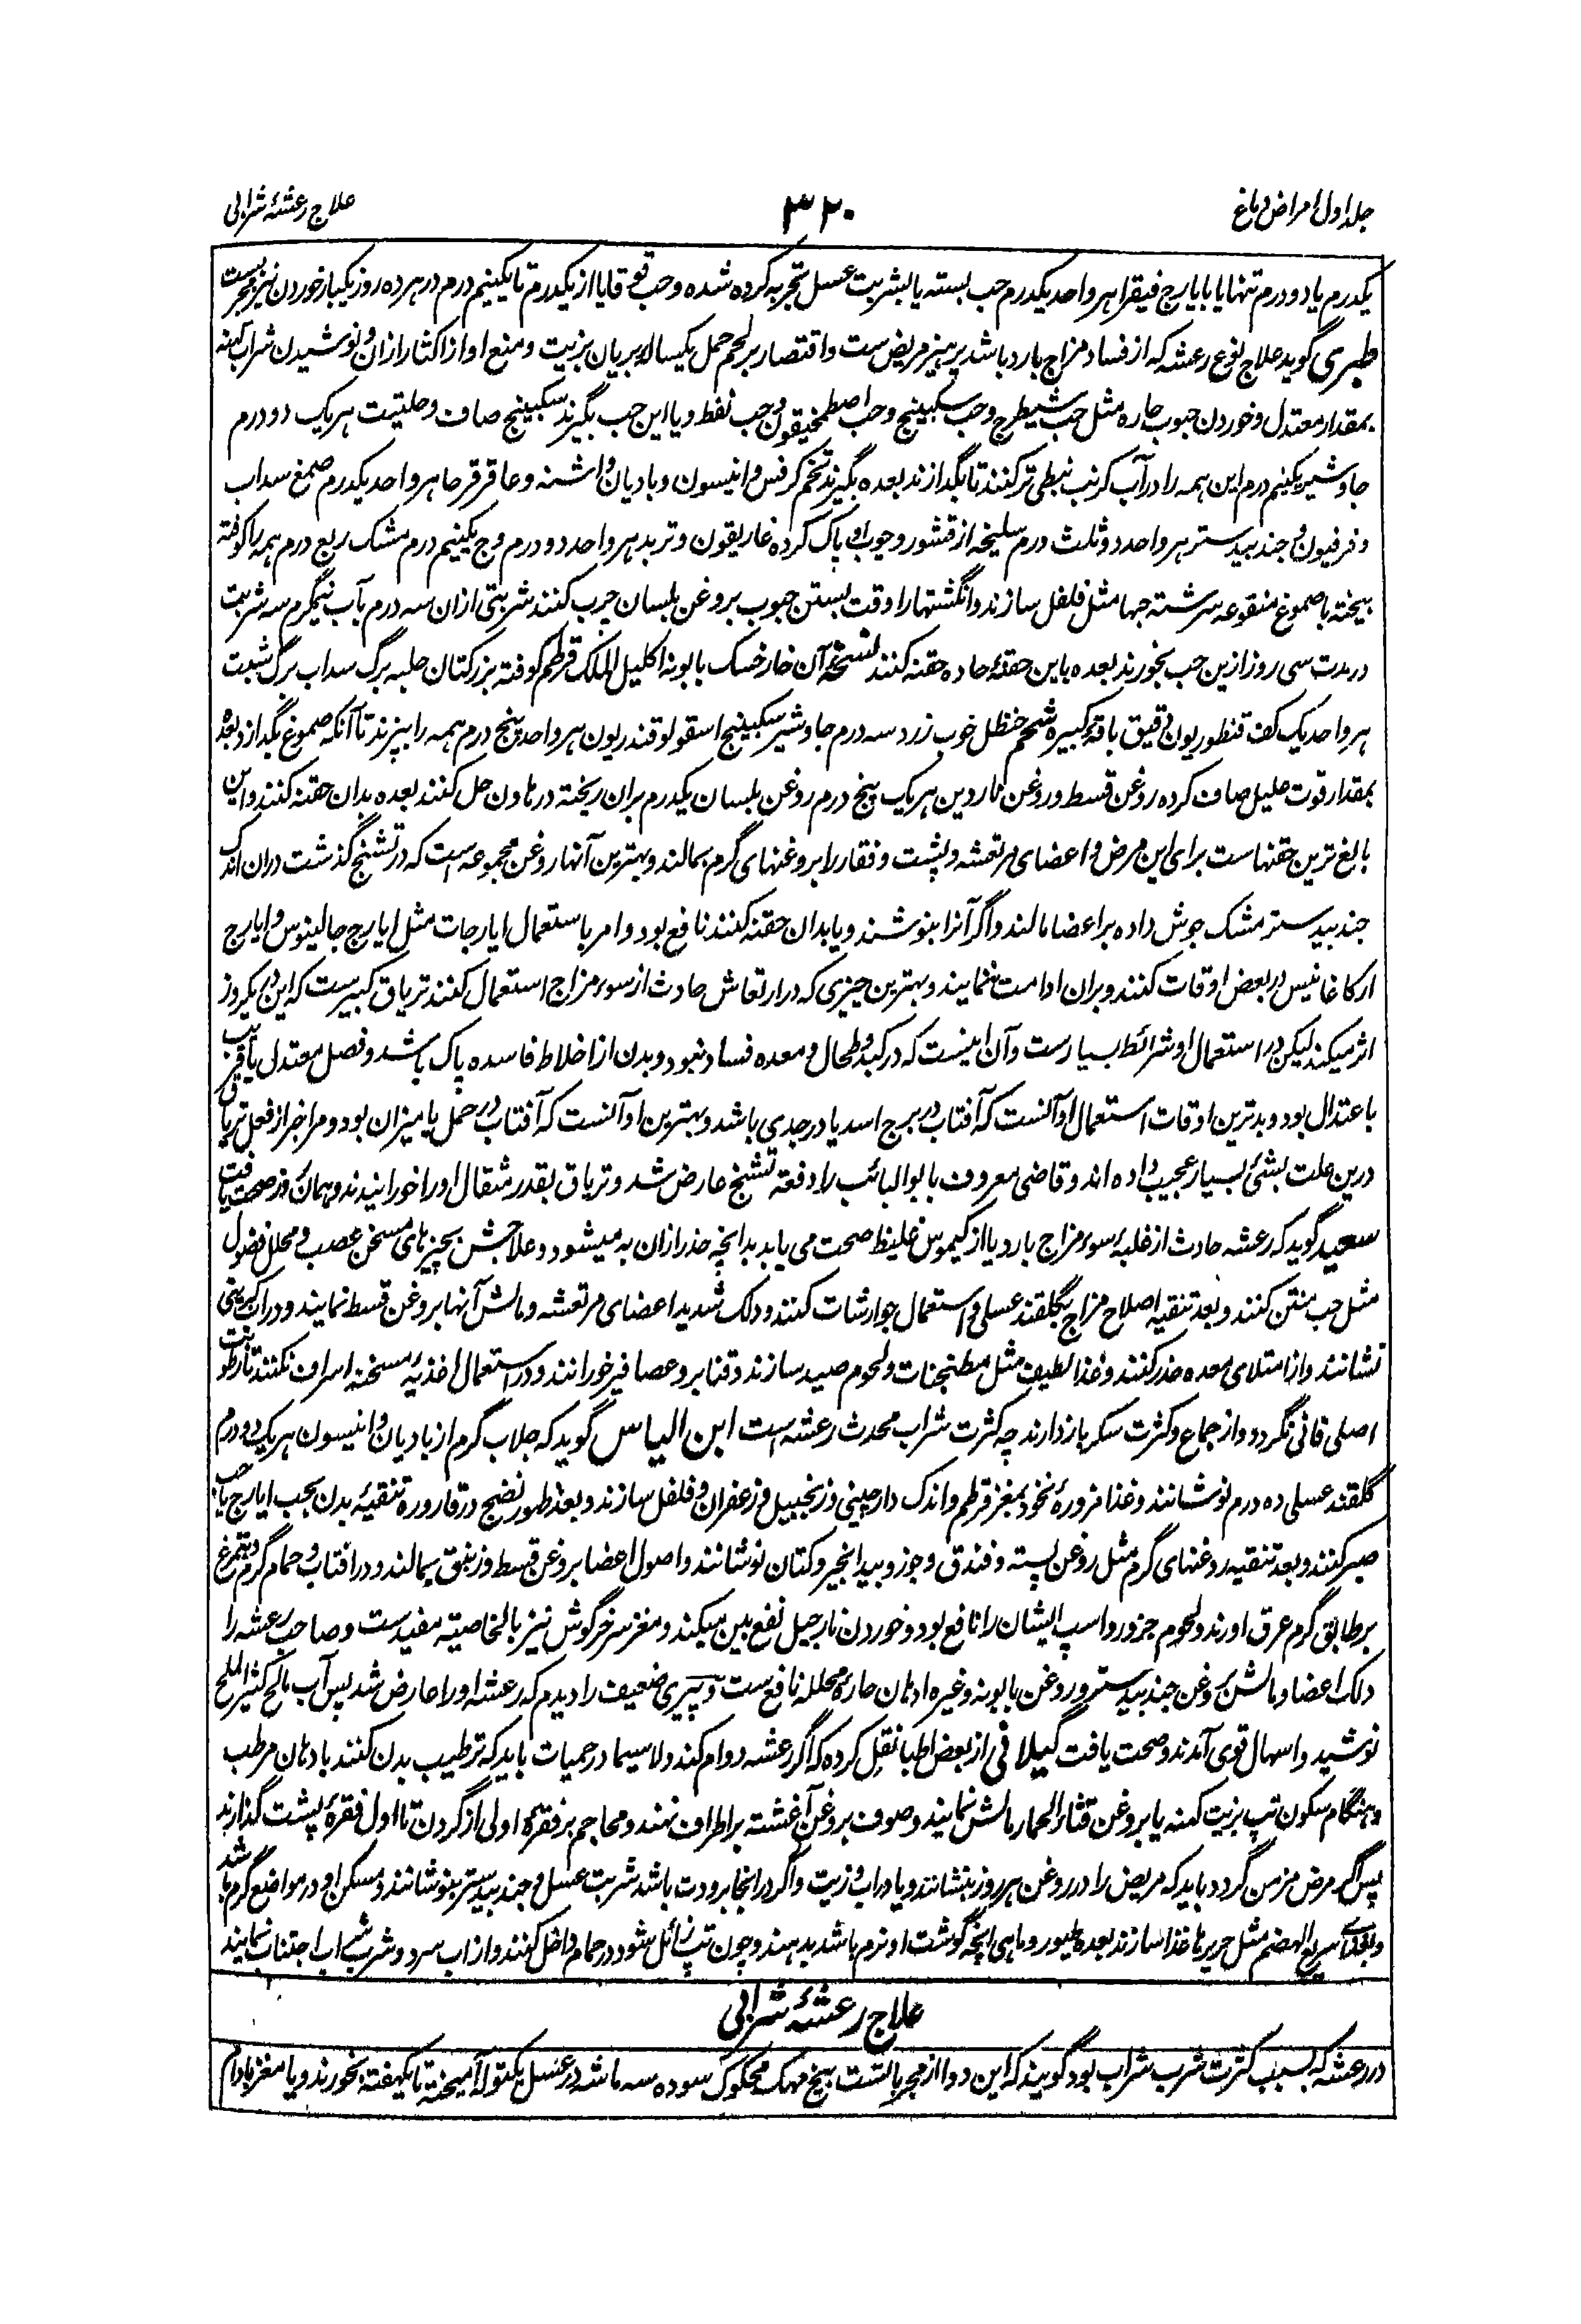 جلد اول امراض دماغ
۳۲۰
علاج رعشۀ شرابی
یکدرم یا دو درم تنها یا با یارج فیقرا هر واحد یکدرم حب بسته یا بشربت عسل تجربه کرده شده و حب قوقایا از یکدرم تا یکنیم درم در هر ده روز یکبار خوردن نیز مجربست
طبری گوید علاج نوع رعشه که از فساد مزاج بارد باشد پرهیز مریض ست و اقتصار بر لحم حمل یکساله بریان بزیت و منع او از اکثار ازان و نوشیدن شراب کهنه
بمقدار معتدل و خوردن حبوب حاره مثل حب شیطرج و حب سکبینج و حب اصطمخیقون و حب نفط و یا این حب بگیرند سکبینج صاف و حلتیت هر یک دو درم
جاوشیر یکنیم درم این همه را در آب کرنب نبطی تر کنند تا بگدازند بعده بگیرند تخم کرفس و انیسون و بادیان و اشنه و عاقرقرحا هر واحد یکدرم صمغ سداب
و فرفیون و جندبیدستر هر واحد دو ثلث درم سلیخه از قشور و چوب او پاک کرده غاریقون و تربد هر واحد دو درم وج یکنیم درم مشک ربع درم همه را کوفته
بیخته با صموغ منقوعه سرشته حبها مثل فلفل سازند و انگشتها را وقت بستن حبوب بروغن بلسان چرب کنند شربتی ازان سه درم بآب نیمگرم سه شربت
در مدت سی روز ازین حب بخورند بعده باین حقنۀ حاده حقنه کنند نسخۀ آن خارخسک بابونه اکلیل الملک قرطم کوفته بزر کتان حلبه برگ سداب برگ شبت
هر واحد یک کف قنطوریون دقیق باقۀ کبیره شحم حنظل خوب زرد سه درم جاوشیر سکبینج اسقولوقندریون هر واحد پنج درم همه را بپزند تا آنکه صموغ بگدازد بعده
بمقدار قوت علیل صاف کرده روغن قسط و روغن ناردین هر یک پنج درم روغن بلسان یکدرم بران ریخته در هاون حل کنند بعده بدان حقنه کنند و این
بالغ ترین حقنهاست برای این مرض و اعضای مرتعشه و پشت و فقار را بروغنهای گرم بمالند و بهترین آنها روغن مجموعه است که در تشنج گذشت دران اندک
جندبیدستر مشک جوش داده بر اعضا مالند و اگر آنرا بنوشند و یا بدان حقنه کنند نافع بود و امر باستعمال ایارجات مثل ایارج جالینوس و ایارج
ارکاغانیس در بعض اوقات کنند و بران ادامت ننمایند و بهترین چیزی که در ارتعاش حادث از سوء مزاج استعمال کنند تریاق کبیرست که این در یکروز
اثر میکند لیکن در استعمال او شرائط بسیارست و آن اینست که در کبد و طحال و معده فساد نبود و بدن از اخلاط فاسده پاک باشد و فصل معتدل یا قریب
باعتدال بود و بدترین اوقات استعمال او آنست که آفتاب در برج اسد یا در جدی باشد و بهترین او آنست که آفتاب در حمل یا میزان بود و مراجز از فعل تریاق
درین علت بشئ بسیار عجیب داده اند و قاضی معروف بابوالبائب را دفعة تشنج عارض شد و تریاق بقدر مثقال او را خورانیدند و همان روز صحت یافت
سعید گوید که رعشه حادث از غلبۀ سوء مزاج بارد یا از کیموس غلیظ صحت می یابد بدانچه خدر ازان به میشود و علاجش بچیزهای مسخن عصب و محلل فضول
مثل حب منتن کنند و بعد تنقیه اصلاح مزاج بگلقند عسلی و استعمال جوارشات کنند و دلک شدید اعضای مرتعشه و مالش آنها بروغن قسط نمایند و در آب کبریتی
نشانند و از امتلای معده حذر کنند و غذا لطیف مثل مطنجنات و لحوم صید سازند و قنابر و عصافیر خورانند و در استعمال اغذیۀ مسخنه اسراف نکنند تا رطوبت
اصلی فانی نگردد و از جماع و کثرت سکر باز دارند چه کثرت شراب محدث رعشه است ابن الیاس گوید که جلاب گرم از بادیان و انیسون هر یک دو درم
گلقند عسلی ده درم نوشانند و غذا مزورۀ نخود بمغز قرطم و اندک دارچینی و زنجبیل و زعفران و فلفل سازند و بعد ظهور نضج در قاروره تنقیۀ بدن بحب ایارج یا حب
صبر کنند و بعد تنقیه روغنهای گرم مثل روغن پسته و فندق و جوز و بیدانجیر و کتان نوشانند و اصول اعضا بروغن قسط و زنبق بمالند و در آفتاب و حمام گرم و تمرغ
بر طابق گرم عرق آورند و لحوم جزور و اسپ ایشان را نافع بود و خوردن نارجیل نفع بین میکند و مغز سر خرگوش نیز بالخاصیته مفیدست و صاحب رعشه را
دلک اعضا و مالش روغن جندبیدستر و روغن بابونه و غیره ادهان حارۀ محلله نافع ست و پیری ضعیف را دیدم که رعشه او را عارض شد پس آب مالح کثیر الملح
نوشید و اسهال قوی آمدند و صحت یافت گیلانی از بعض اطبا نقل کرده که اگر رعشه دوام کند و لاسیما در حمیات باید که ترطیب بدن کنند بادهان مرطب
و هنگام سکون تپ بزیت کهنه یا بروغن قثاء الحمار مالش نمایند و صوف بروغن آغشته بر اطراف نهند و محاجم بر فقرۀ اولی از گردن تا اول فقرۀ پشت گذارند
پس اگر مرض مزمن گردد باید که مریض را در روغن هر روز بنشانند و یا در آب و زیت و اگر در انجا برودت باشد شربت عسل و جندبیدستر بنوشانند و مسکن او در مواضع گرم باشد
و بغذای سریع الهضم مثل حریرها غذا سازند بعده طیور و ماهی آنچه گوشت او نرم باشد بدهند و چون تپ زائل شود در حمام داخل کنند و از آب سرد و شرب شراب اجتناب نمایند
علاج رعشۀ شرابی
در رعشه که بسبب کثرت شرب شراب بود گویند که این دوا از مجرباتست بیخ مهک محکوک سوده سه ماشه در عسل یکتوله آمیخته تا یکهفته بخورند و یا مغز بادام